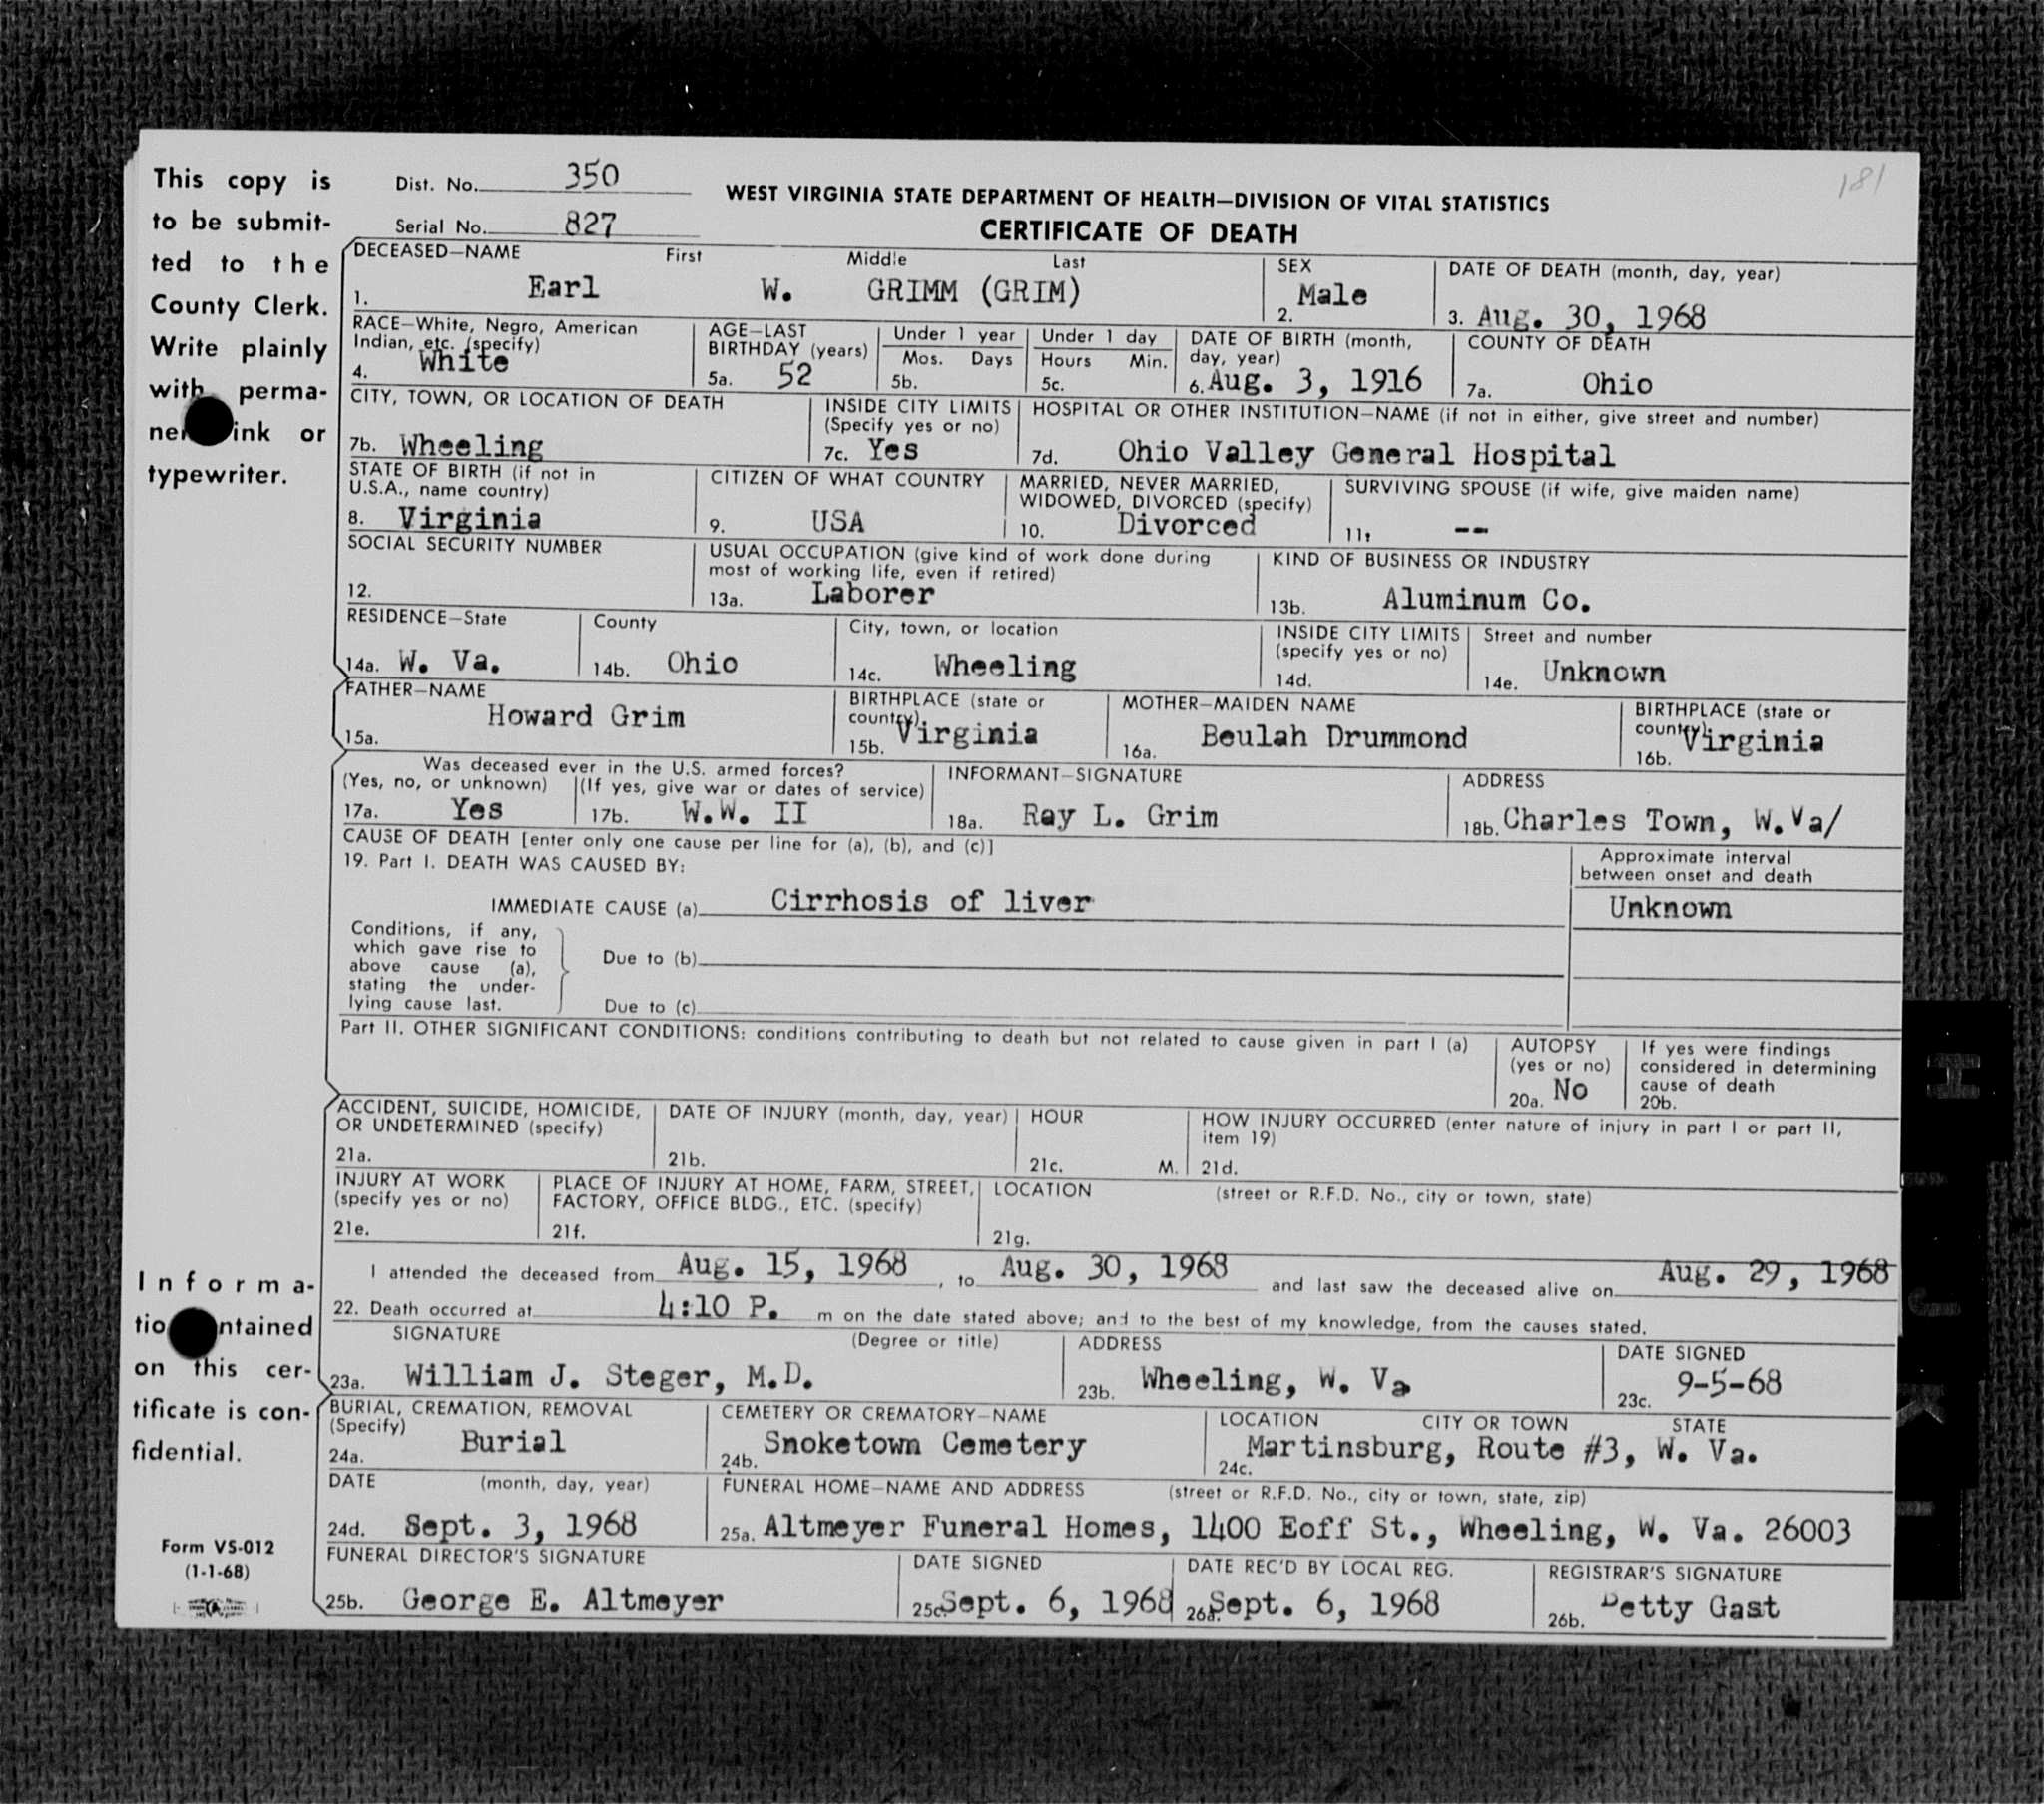 181
Dist. No. 350
Serial No. 827
WEST VIRGINIA STATE DEPARTMENT OF HEALTH—DIVISION OF VITAL STATISTICS
CERTIFICATE OF DEATH
This copy is
to be submit-
ted to the
County Clerk.
Write plainly
with perma-
ink or
typewriter.
DECEASED—NAME First Middle Last
1. Earl W. GRIMM (GRIM)
SEX
2. Male
DATE OF DEATH (month, day, year)
3. Aug. 30, 1968
RACE—White, Negro, American
Indian, etc. (specify)
4. White
AGE—LAST
BIRTHDAY (years)
5a. 52
Under 1 year
Mos. Days
5b.
Under 1 day
Hours Min.
5c.
DATE OF BIRTH (month,
day, year)
6. Aug. 3, 1916
COUNTY OF DEATH
7a. Ohio
CITY, TOWN, OR LOCATION OF DEATH
7b. Wheeling
INSIDE CITY LIMITS
(Specify yes or no)
7c. Yes
HOSPITAL OR OTHER INSTITUTION—NAME (if not in either, give street and number)
7d. Ohio Valley General Hospital
STATE OF BIRTH (if not in
U.S.A., name country)
8. Virginia
CITIZEN OF WHAT COUNTRY
9. USA
MARRIED, NEVER MARRIED,
WIDOWED, DIVORCED (specify)
10. Divorced
SURVIVING SPOUSE (if wife, give maiden name)
11. --
SOCIAL SECURITY NUMBER
12.
USUAL OCCUPATION (give kind of work done during
most of working life, even if retired)
13a. Laborer
KIND OF BUSINESS OR INDUSTRY
13b. Aluminum Co.
RESIDENCE—State
14a. W. Va.
County
14b. Ohio
City, town, or location
14c. Wheeling
INSIDE CITY LIMITS
(specify yes or no)
14d.
Street and number
14e. Unknown
FATHER—NAME
15a. Howard Grim
BIRTHPLACE (state or
country)
15b. Virginia
MOTHER—MAIDEN NAME
16a. Beulah Drummond
BIRTHPLACE (state or
country)
16b. Virginia
Was deceased ever in the U.S. armed forces?
(Yes, no, or unknown) (If yes, give war or dates of service)
17a. Yes 17b. W.W. II
INFORMANT—SIGNATURE
18a. Ray L. Grim
ADDRESS
18b. Charles Town, W.Va/
CAUSE OF DEATH [enter only one cause per line for (a), (b), and (c)]
19. Part I. DEATH WAS CAUSED BY:
Approximate interval
between onset and death
IMMEDIATE CAUSE (a) Cirrhosis of liver
Unknown
Conditions, if any,
which gave rise to
above cause (a),
stating the under-
lying cause last.
Due to (b)
Due to (c)
Part II. OTHER SIGNIFICANT CONDITIONS: conditions contributing to death but not related to cause given in part I (a)
AUTOPSY
(yes or no)
20a. No
If yes were findings
considered in determining
cause of death
20b.
ACCIDENT, SUICIDE, HOMICIDE,
OR UNDETERMINED (specify)
21a.
DATE OF INJURY (month, day, year)
21b.
HOUR
21c. M.
HOW INJURY OCCURRED (enter nature of injury in part I or part II,
item 19)
21d.
INJURY AT WORK
(specify yes or no)
21e.
PLACE OF INJURY AT HOME, FARM, STREET,
FACTORY, OFFICE BLDG., ETC. (specify)
21f.
LOCATION (street or R.F.D. No., city or town, state)
21g.
I attended the deceased from Aug. 15, 1968, to Aug. 30, 1968 and last saw the deceased alive on Aug. 29, 1968
22. Death occurred at 4:10 P. m on the date stated above; and to the best of my knowledge, from the causes stated.
SIGNATURE (Degree or title)
23a. William J. Steger, M.D.
ADDRESS
23b. Wheeling, W. Va
DATE SIGNED
23c. 9-5-68
BURIAL, CREMATION, REMOVAL
(Specify)
24a. Burial
CEMETERY OR CREMATORY—NAME
24b. Snoketown Cemetery
LOCATION CITY OR TOWN STATE
24c. Martinsburg, Route #3, W. Va.
DATE (month, day, year)
24d. Sept. 3, 1968
FUNERAL HOME—NAME AND ADDRESS (street or R.F.D. No., city or town, state, zip)
25a. Altmeyer Funeral Homes, 1400 Eoff St., Wheeling, W. Va. 26003
FUNERAL DIRECTOR'S SIGNATURE
25b. George E. Altmeyer
DATE SIGNED
25c. Sept. 6, 1968
DATE REC'D BY LOCAL REG.
26a. Sept. 6, 1968
REGISTRAR'S SIGNATURE
26b. Betty Gast
Informa-
ntained
on this cer-
tificate is con-
fidential.
Form VS-012
(1-1-68)